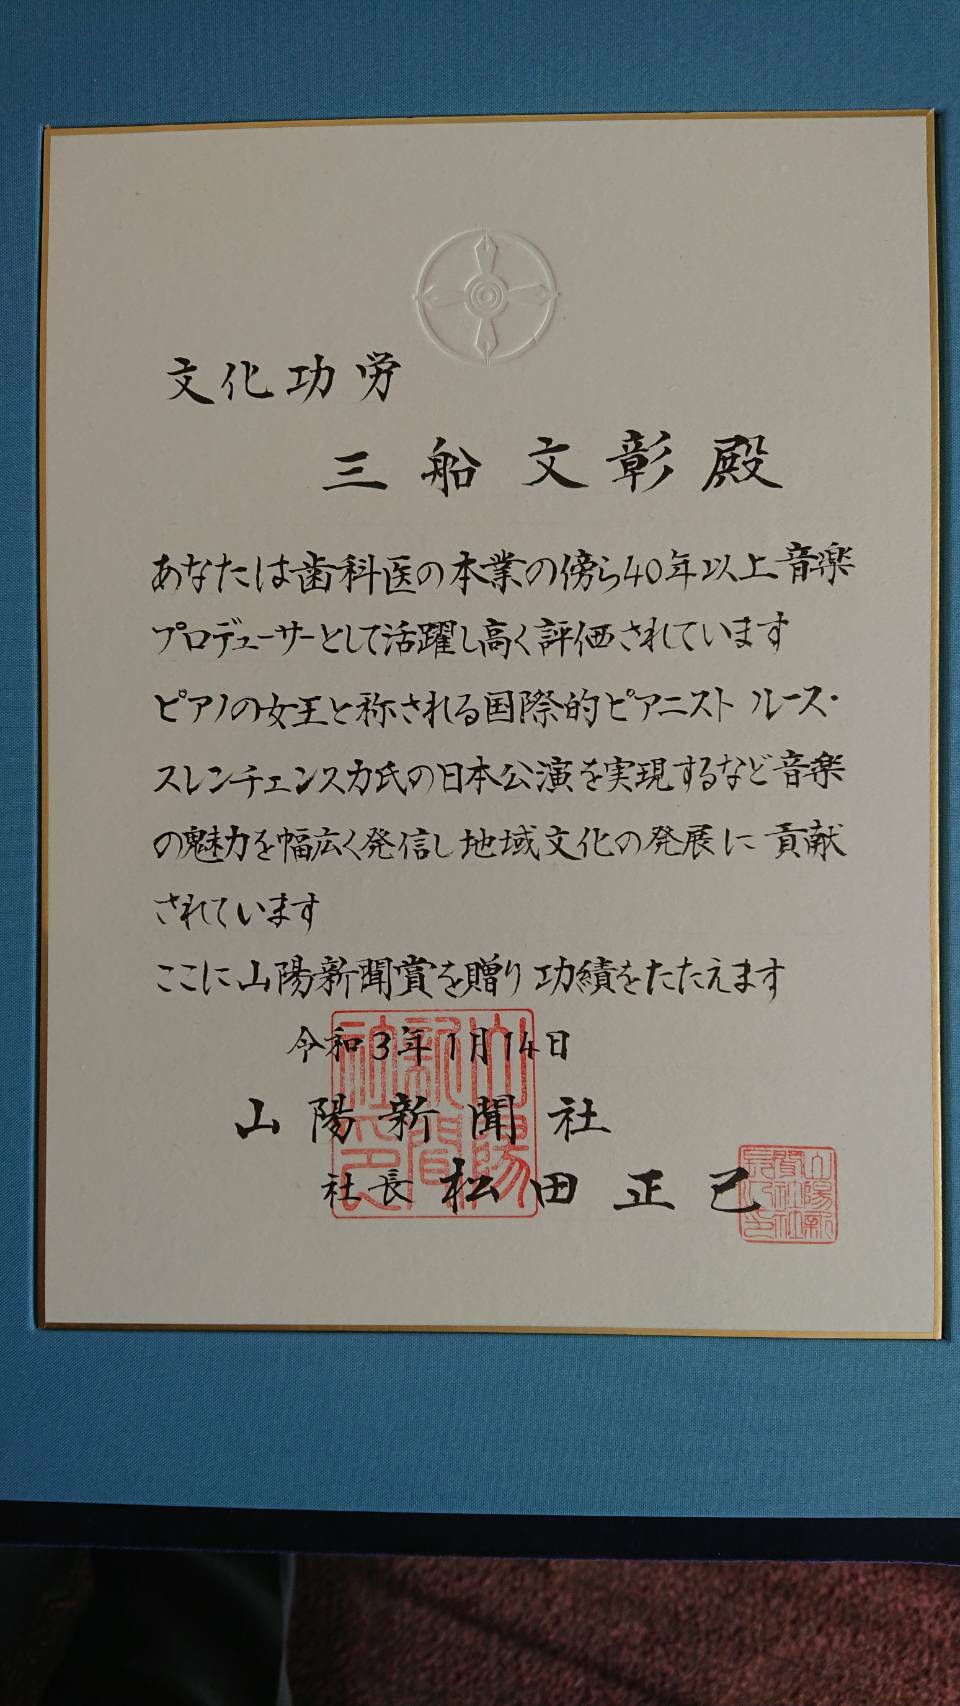 文化功労
三船文彰殿
あなたは歯科医の本業の傍ら40年以上音楽
プロデューサーとして活躍し高く評価されています
ピアノの女王と称される国際的ピアニスト ルース・
スレンチェンスカ氏の日本公演を実現するなど音楽
の魅力を幅広く発信し地域文化の発展に貢献
されています
ここに山陽新聞賞を贈り功績をたたえます
令和3年1月14日
山陽新聞社
社長 松田正己
山陽新聞社之印
山陽新聞社社長之印